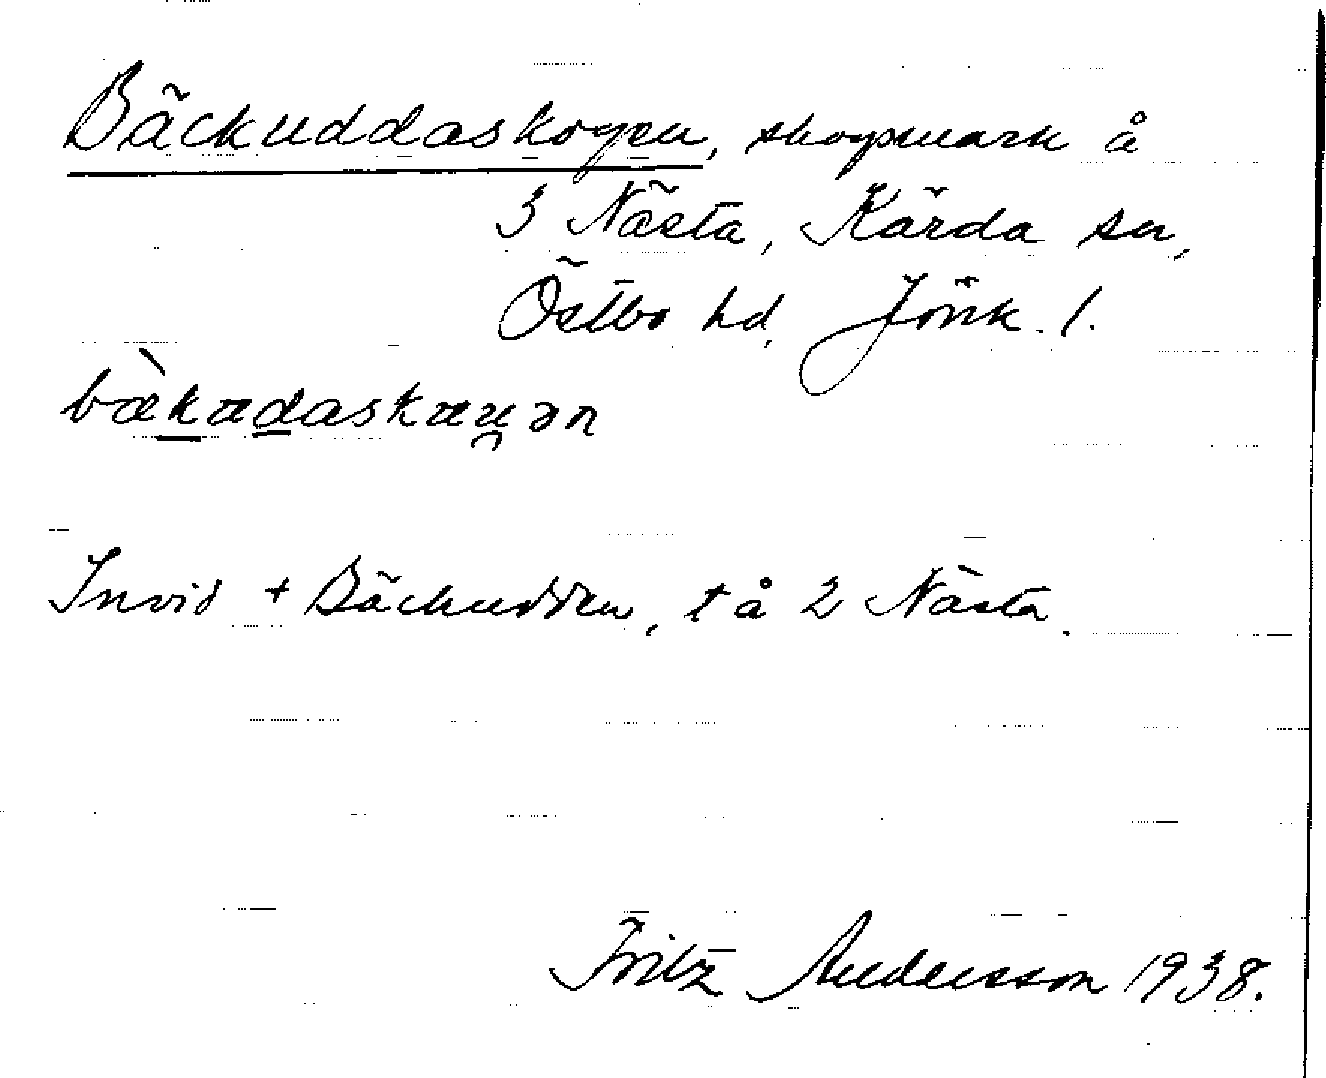 Bäckuddaskogen, skogsmark å
3 Nästa, Kärda sn,
Östbo hd, Jönk. l.
bækadaskau̯ən
Invid + Bäckudden, t å 2 Nästa.
Fritz Andersson 1938.